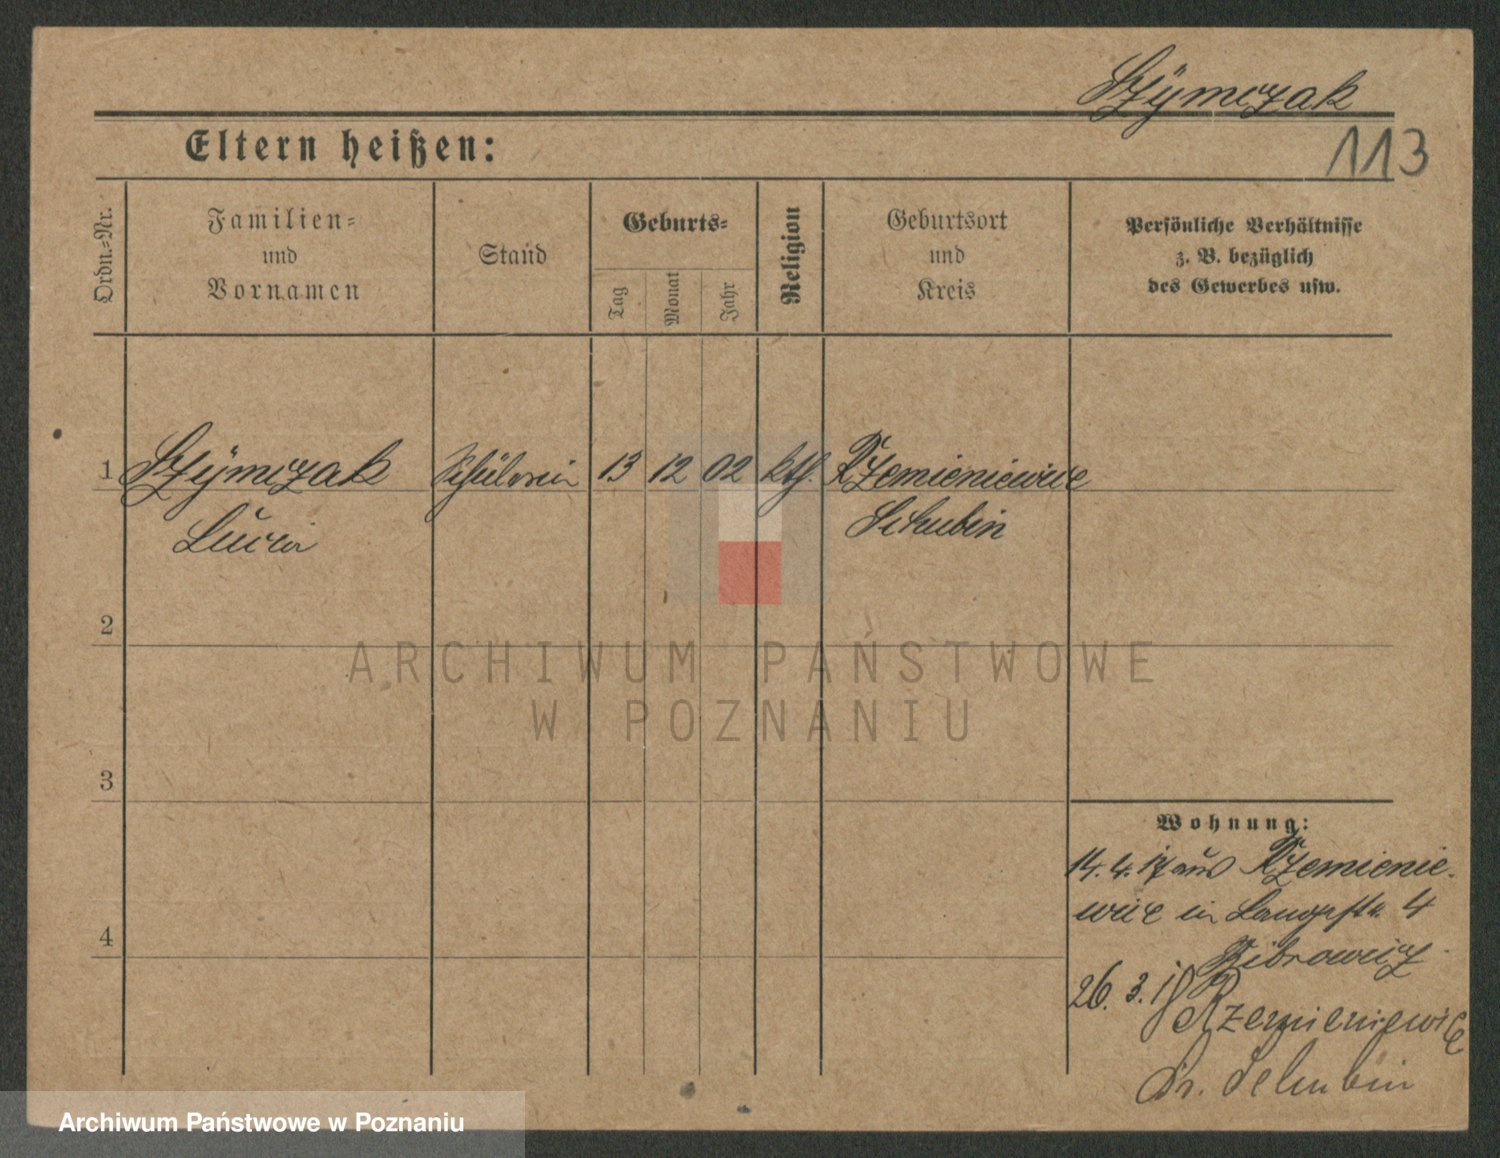 Szÿmczak
113
Eltern heißen:
Ordn.-Nr.
Familien-
und
Vornamen
Stand
Geburts-
Tag
Monat
Jahr
Religion
Geburtsort
und
Kreis
Persönliche Verhältnisse
z. B. bezüglich
des Gewerbes usw.
1 Szÿmczak Schülerin 13 12 02 kth. Rzemieniewice
Lucia Schubin
2
ARCHIWUM PAŃSTWOWE
W POZNANIU
3
Wohnung:
14.4.17 aus Rzemienie-
wice in Langestr. 4
4
26.3.18 Rzemieniewice
Kr. Schubin
Archiwum Państwowe w Poznaniu